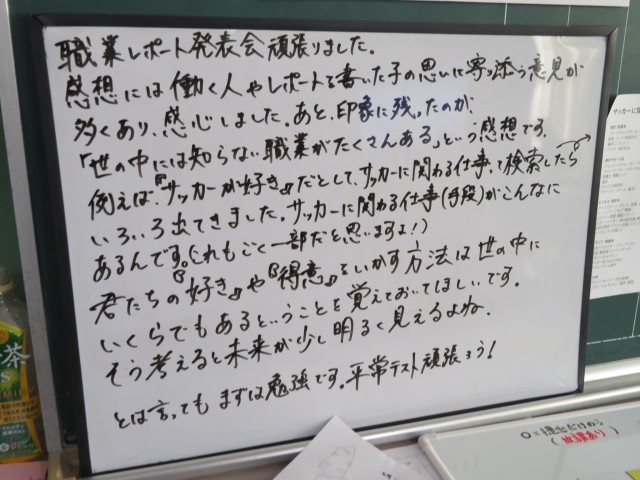 職業レポート発表会頑張りました。
感想には働く人やレポートを書いた子の思いに寄り添う意見が
多くあり、感心しました。あと、印象に残ったのが、
「世の中には知らない職業がたくさんある」という感想です。
例えば、『サッカーが好き』だとして、サッカーに関わる仕事、で検索したら
いろいろ出てきました。サッカーに関わる仕事(手段)がこんなに
あるんです。(これもごく一部だと思いますよ!)
君たちの『好き』や『得意』をいかす方法は世の中に
いくらでもあるということを覚えておいてほしいです。
そう考えると未来が少し明るく見えるよね。
とは言ってもまずは勉強です。平常テスト頑張ろう!
サッカーに
茶
○=提出だけのう
(放課あり)